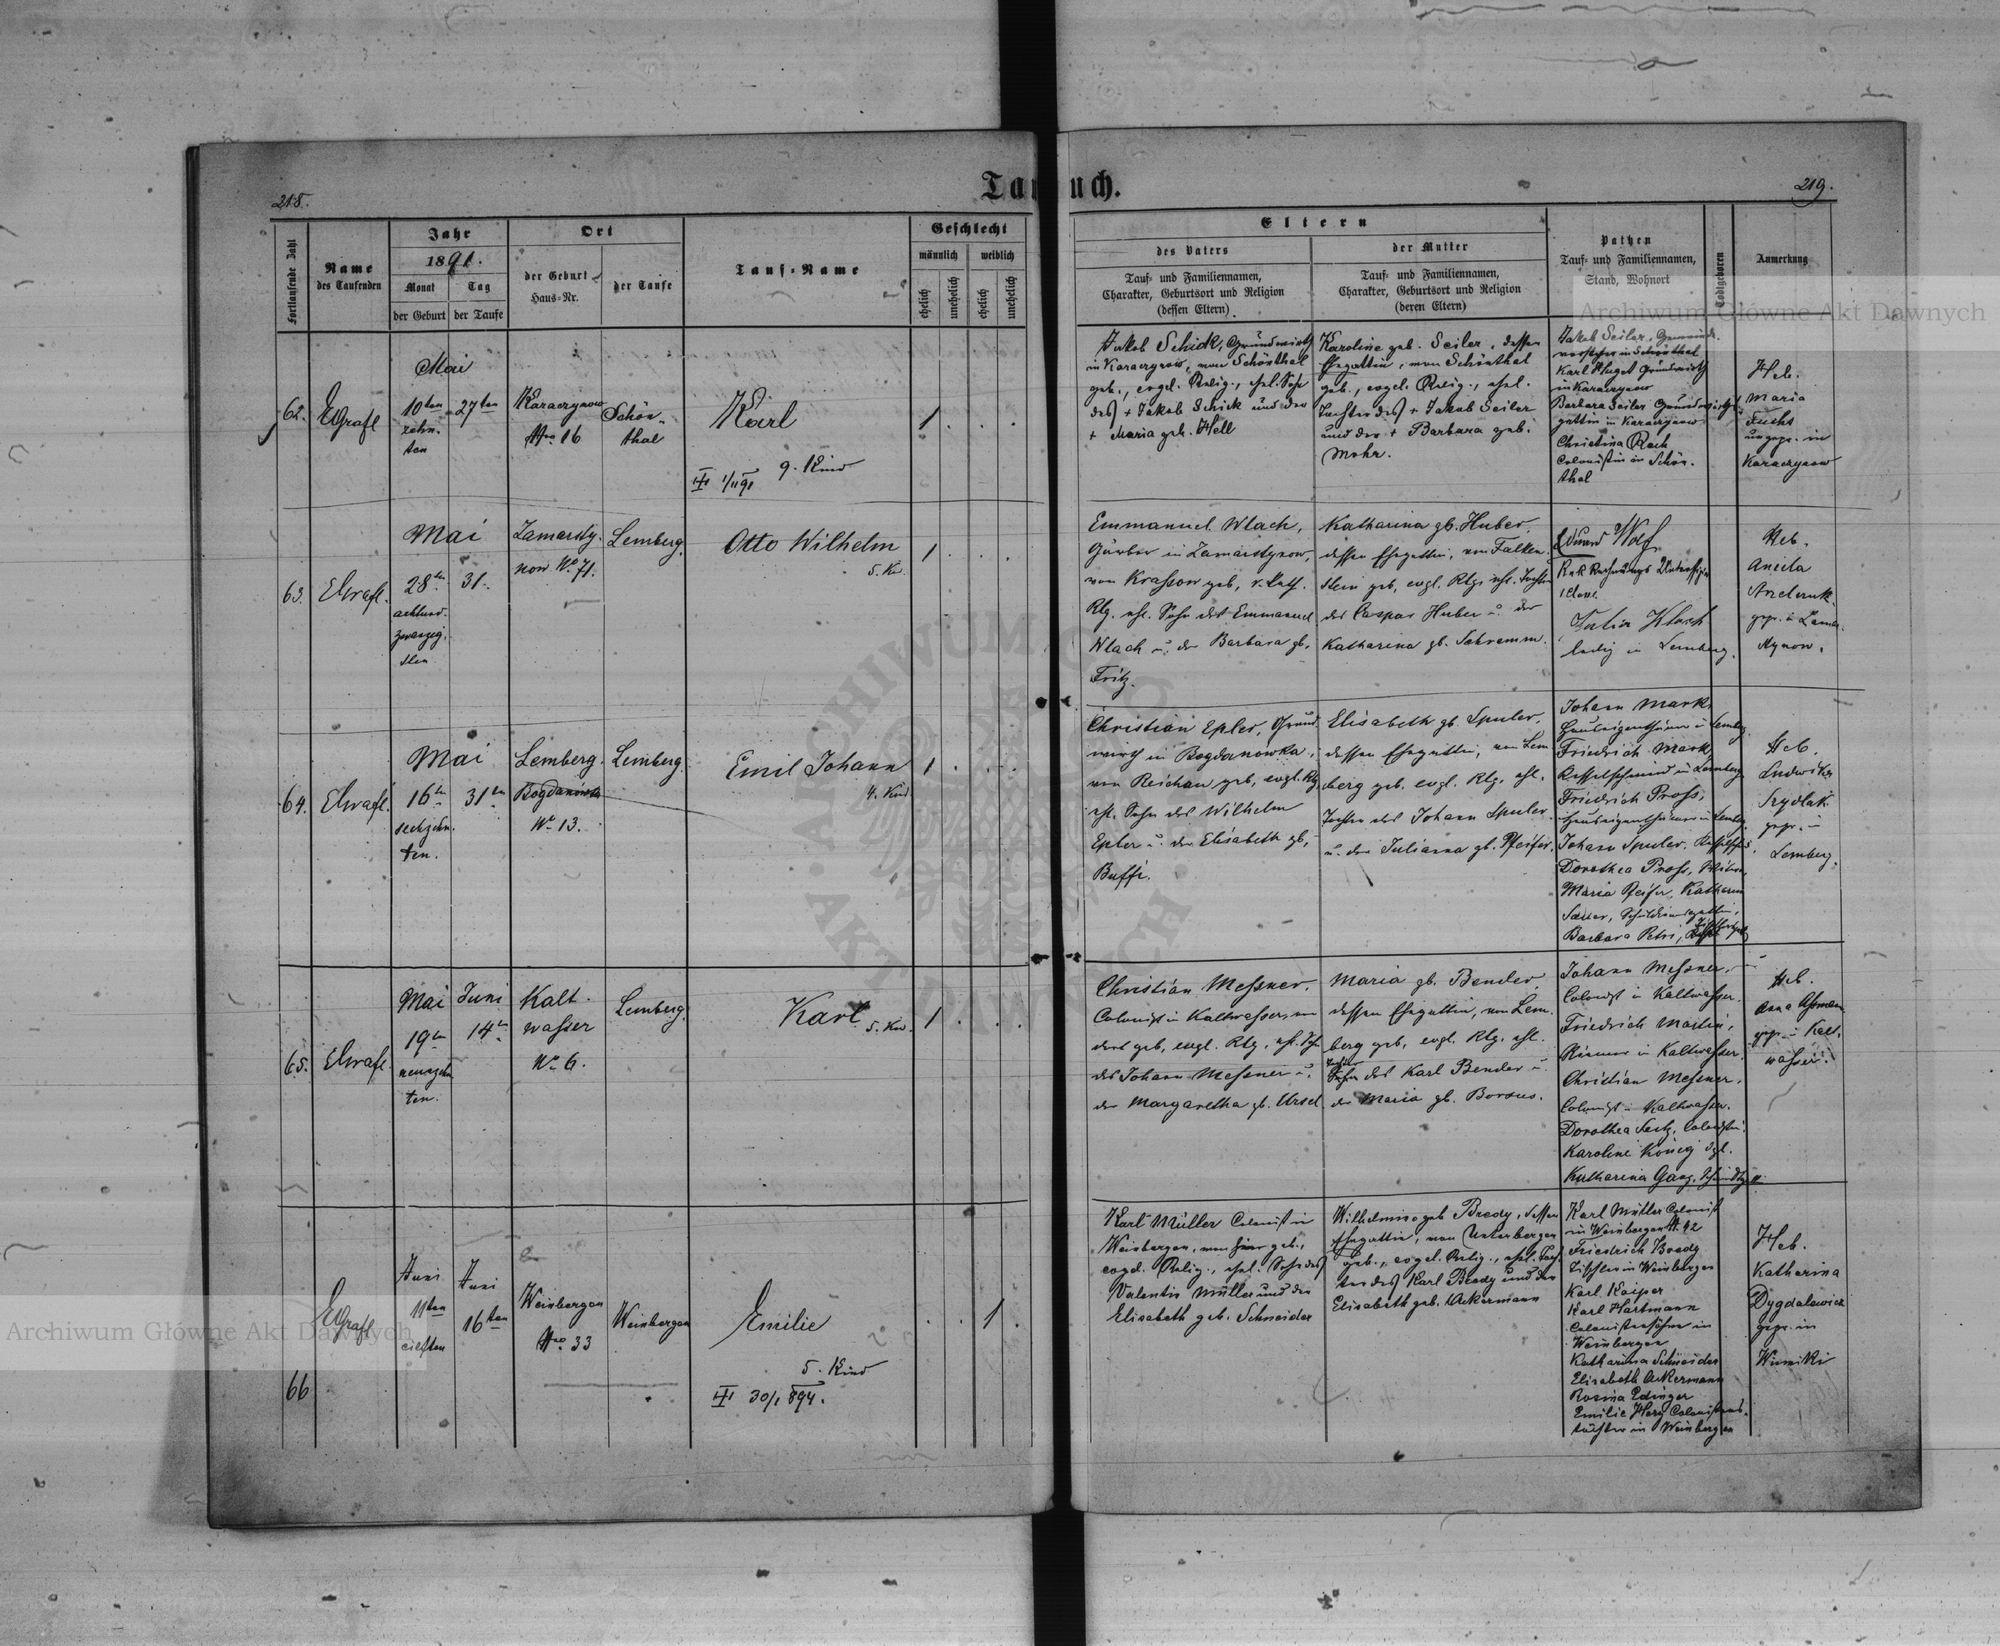 218.
Taufbuch.
219.
Fortlaufende Zahl
Name
des Taufenden
Jahr
1891.
Monat
Tag
der Geburt
der Taufe
Ort
der Geburt
Haus-Nr.
der Taufe
Tauf-Name
Geschlecht
männlich
weiblich
ehelich
unehelich
ehelich
unehelich
Eltern
des Vaters
Tauf- und Familiennamen,
Charakter, Geburtsort und Religion
(dessen Eltern).
der Mutter
Tauf- und Familiennamen,
Charakter, Geburtsort und Religion
(deren Eltern)
Pathen
Tauf- und Familiennamen,
Stand, Wohnort
Todtgeboren
Anmerkung
Archiwum Główne Akt Dawnych
62.
Mai
10ten
zehn-
ten
27ten
Karaczynow
Nro 16
Schön-
thal
Karl
9. Kind
1
Jakob Schick, Grundwirth
in Karaczynow, von Schönthal
geb., evgel. Relig., ehel. Sohn
des + Jakob Schick und der
+ Maria geb. Hell
Karoline geb. Seiler, dessen
Ehegattin, von Schönthal
geb., evgel. Relig., ehel.
Tochter des + Jakob Seiler
und der + Barbara geb.
Mohr.
Jakob Seiler, Gemeinde-
vorsteher in Schönthal
Karl Pfuget Grundwirth
in Karaczynow
Barbara Seiler Grundwirths-
gattin in Karaczynow
Christina Rach
Colonistin in Schön-
thal
Heb.
Maria
Fuchs
ungepr. in
Karaczynow
63.
Mai
28ten
achtund-
zwanzig-
sten
31.
Zamarsty-
now No 71.
Lemberg.
Otto Wilhelm
5. Kd.
1
Emmanuel Wlach,
Gärber in Zamarstynow,
von Krassow geb., r. kath.
Rlg. ehl. Sohn des Emmanuel
Wlach u. der Barbara gb.
Fritz.
Katharina gb. Huber,
dessen Ehegattin, von Falken-
stein geb, evgl. Rlg. ehl. Tochter
des Caspar Huber u. der
Katharina gb. Schramm.
Eduard Wolf
Julia Wlach
ledig in Lemberg.
Heb.
Aniela
gepr. in Zamar-
stynow.
64.
Mai
16ten
sechzehn-
ten.
31ten
Lemberg.
Bogdanowka
No 13.
Lemberg.
Emil Johann
4. Kind
1
Christian Epler, Grund-
wirth in Bogdanowka,
von Reichau geb, evgl. Rlg.
ehl. Sohn des Wilhelm
Epler u. der Elisabeth gb,
Buffi.
Elisabeth gb. Spuler,
dessen Ehegattin, von Lem-
berg geb. evgl. Rlg. ehl.
Tochter des Johann Spuler
u. der Julianna gb. Pfeifer.
Johann Mark,
Hauseigenthümer in Lemberg
Friedrich Mark,
Kesselschmied in Lemberg
Friedrich Pross,
Hauseigenthümer in Lemberg
Johann Spuler,
Dorothea Pross,
Maria Pfeifer, Katharina
Sauer,
Barbara Petri,
Heb.
Ludwika
Szydlak
gepr. in
Lemberg.
65.
Mai
19ten
neunzehn-
ten.
Juni
14ten
Kalt-
wasser
No 6.
Lemberg.
Karl
5. Kind.
1
Christian Messner,
Colonist in Kaltwasser, von
dort geb, evgl. Rlg. ehl. Sohn
des Johann Messner u.
der Margaretha gb. Ursel
Maria gb. Bender,
dessen Ehegattin, von Lem-
berg geb, evgl. Rlg. ehl.
Tochter
Sohn des Karl Bender u.
der Maria gb. Borsus.
Johann Messner,
Colonist in Kaltwasser.
Friedrich Martin,
Riemer in Kaltwasser.
Christian Messner,
Colonist in Kaltwasser.
Dorothea Seitz, Colonistin.
Karoline König dgl.
Katharina Ganz,
Heb.
Anna
gepr. in Kalt-
wasser.
66
Juni
11ten
eilften
Juni
16ten
Weinbergen
Nro 33
Weinbergen
Emilie
5. Kind
30/1 894.
1
Karl Müller Colonist in
Weinbergen, von hier geb.,
evgel. Relig., ehel. Sohn des
Valentin Müller und der
Elisabeth geb. Schneider
Wilhelmine geb Bredy, dessen
Ehegattin, von Unterbergen
geb., evgel. Relig., ehel. Toch-
ter des Karl Bredy und der
Elisabeth geb. Ackermann
Karl Müller Colonist
in Weinbergen N. 42
Friedrich Bredy
Tischler in Weinbergen
Karl Kaiper
Karl Hartmann
Colonistensöhne in
Weinbergen
Katharina Schneider
Elisabeth Ackermann
Rosina Edinger
Emilie Herz Colonistens-
töchter in Weinbergen
Heb.
Katharina
Dygdalewicz
gepr. in
Winniki
Archiwum Główne Akt Dawnych
ARCHIWUM GŁÓWNE AKT DAWNYCH